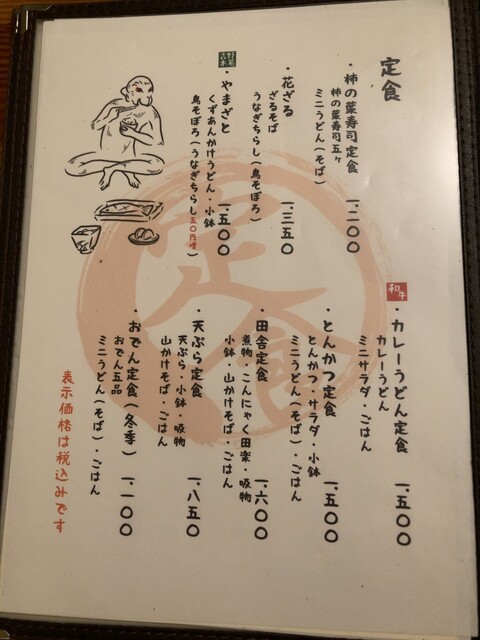 定食
・柿の葉寿司定食
柿の葉寿司五ヶ
ミニうどん(そば)
一、二〇〇
・花ざる
ざるそば
うなぎちらし(鳥そぼろ)
一、三五〇
吉野本葛
・やまざと
くずあんかけうどん・小鉢
鳥そぼろ(うなぎちらし五〇円増)
一、五〇〇
和牛
・カレーうどん定食
カレーうどん
ミニサラダ・ごはん
一、五〇〇
・とんかつ定食
とんかつ・サラダ・小鉢
ミニうどん(そば)・ごはん
一、五〇〇
・田舎定食
煮物・こんにゃく田楽・吸物
小鉢・山かけそば・ごはん
一、六〇〇
・天ぷら定食
天ぷら・小鉢・吸物
山かけそば・ごはん
一、八五〇
・おでん定食(冬季)
おでん五品
ミニうどん(そば)・ごはん
一、一〇〇
表示価格は税込みです
定食